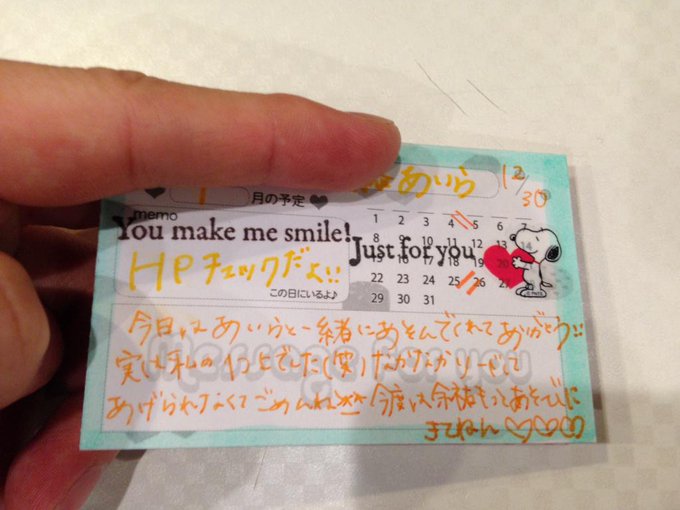 あいら
12/30
1 月の予定
memo
You make me smile!
HPチェックだよ!!
この日にいるよ♪
1 2 3 4 5 6
8 9 10 11 12 13 14
Just for you
16 17 18 19 20
22 23 24 25 26
29 30 31
Message for you
今日はあいらと一緒にあそんでくれてありがとう!!
実は私の1つ上でした(笑)なかなかリードして
あげられなくてごめんね 今度は余裕もってあそびに
きてねん♡♡♡